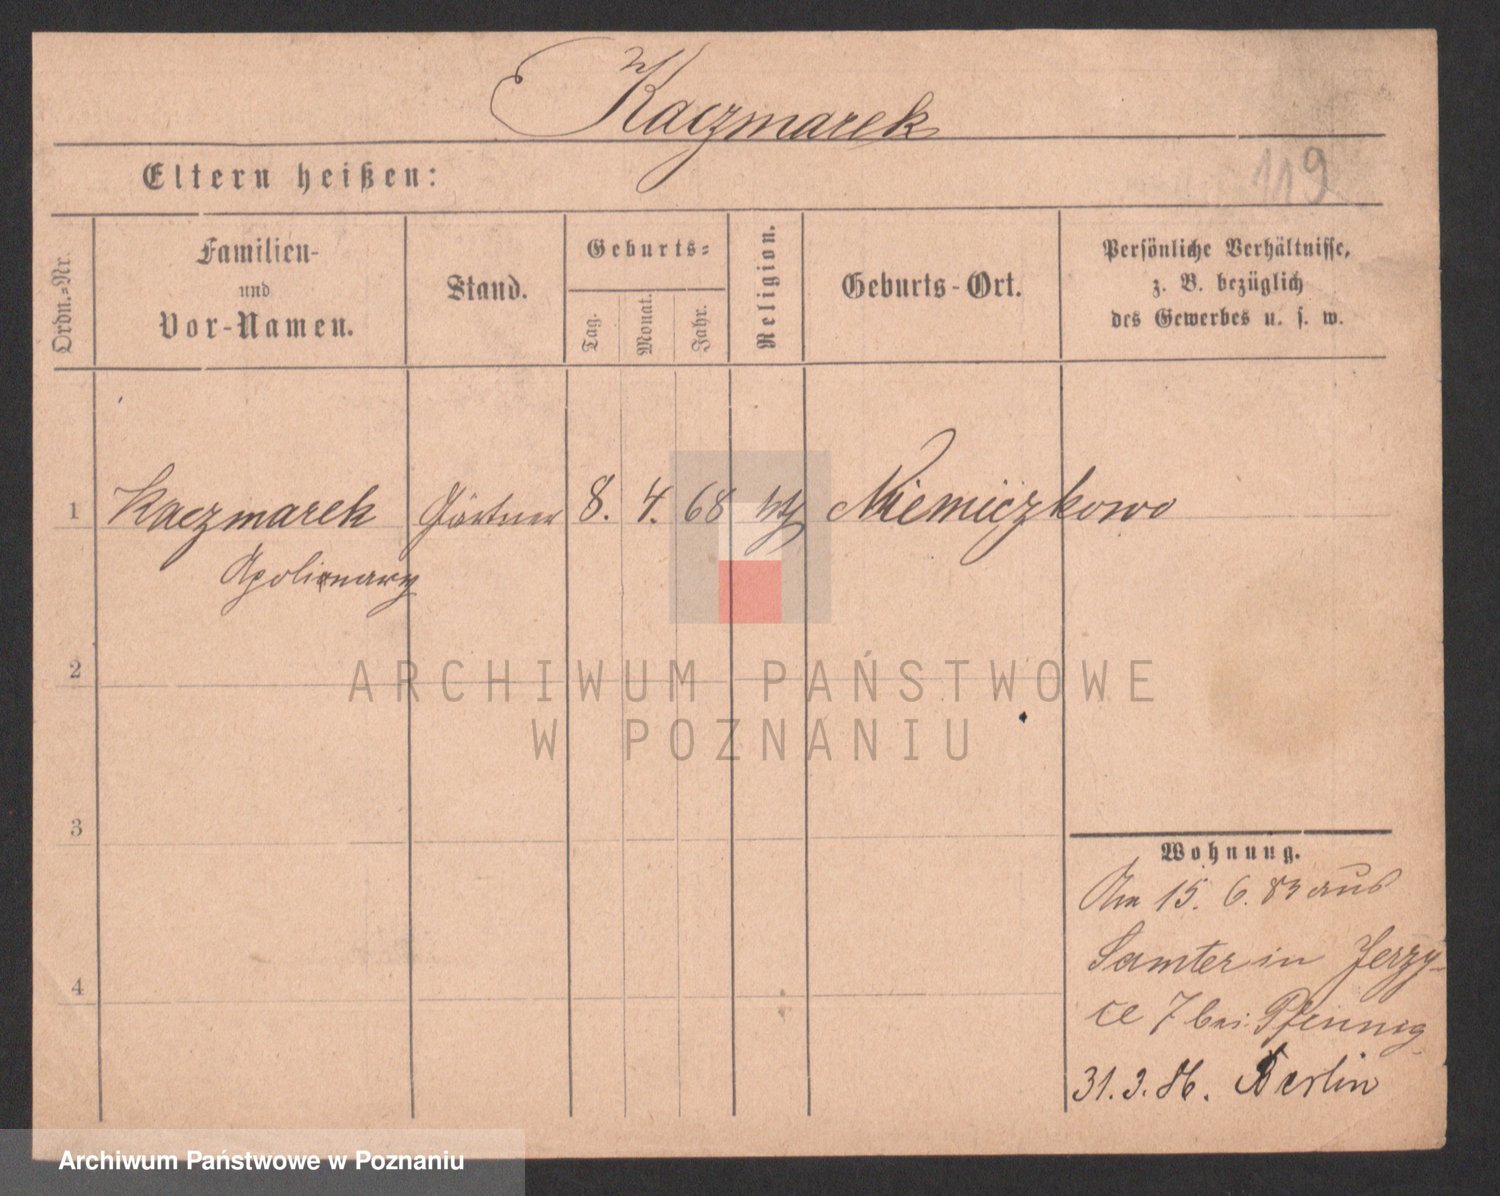 Kaczmarek
Eltern heißen:
119
Ordn.-Nr.
Familien-
und
Vor-Namen.
Stand.
Geburts-
Tag.
Monat.
Jahr.
Religion.
Geburts-Ort.
Persönliche Verhältnisse,
z. B. bezüglich
des Gewerbes u. s. w.
1 Kaczmarek Gärtner 8. 4. 68 Niemiczkowo
Apolinary
2
3
4
ARCHIWUM PAŃSTWOWE
W POZNANIU
Wohnung.
Am 15. 6. 83 aus
Samter in Jerzy-
ce 7 bei Pfennig
31.3.86. Berlin
Archiwum Państwowe w Poznaniu